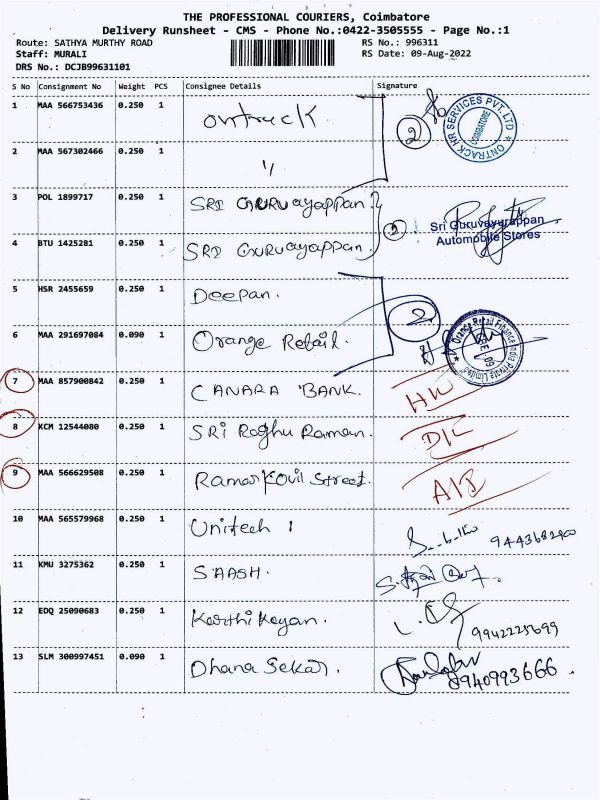 THE PROFESSIONAL COURIERS, Coimbatore
Delivery Runsheet - CMS - Phone No.:0422-3505555 - Page No.:1
Route: SATHYA MURTHY ROAD RS No.: 996311
Staff: MURALI RS Date: 09-Aug-2022
DRS No.: DCJB99631101
S No Consignment No Weight PCS Consignee Details Signature
1 MAA 566753436 0.250 1 ontrack 2
ONTRACK HR SERVICES PVT. LTD COIMBATORE
2 MAA 567302466 0.250 1 "
3 POL 1899717 0.250 1 SRI GURUvayappan. 2
Sri Guruvayurappan
Automobile Stores
4 BTU 1425281 0.250 1 SRI GURUvayappan.
5 HSR 2455659 0.250 1 Deepan. 2
6 MAA 291697084 0.090 1 Orange Retail.
Orange Retail Finance India Private Limited
7 MAA 857900842 0.250 1 CANARA BANK.
8 KCM 12544080 0.250 1 SRI Raghu Raman. D/L
9 MAA 566629508 0.250 1 Ramar Kovil Street.
10 MAA 565579968 0.250 1 Unitech
11 KMU 3275362 0.250 1 SAASH.
12 EDQ 25090683 0.250 1 Karthikeyan. 9942225699
13 SLM 300997451 0.090 1 Dhana Sekar. 8940993666